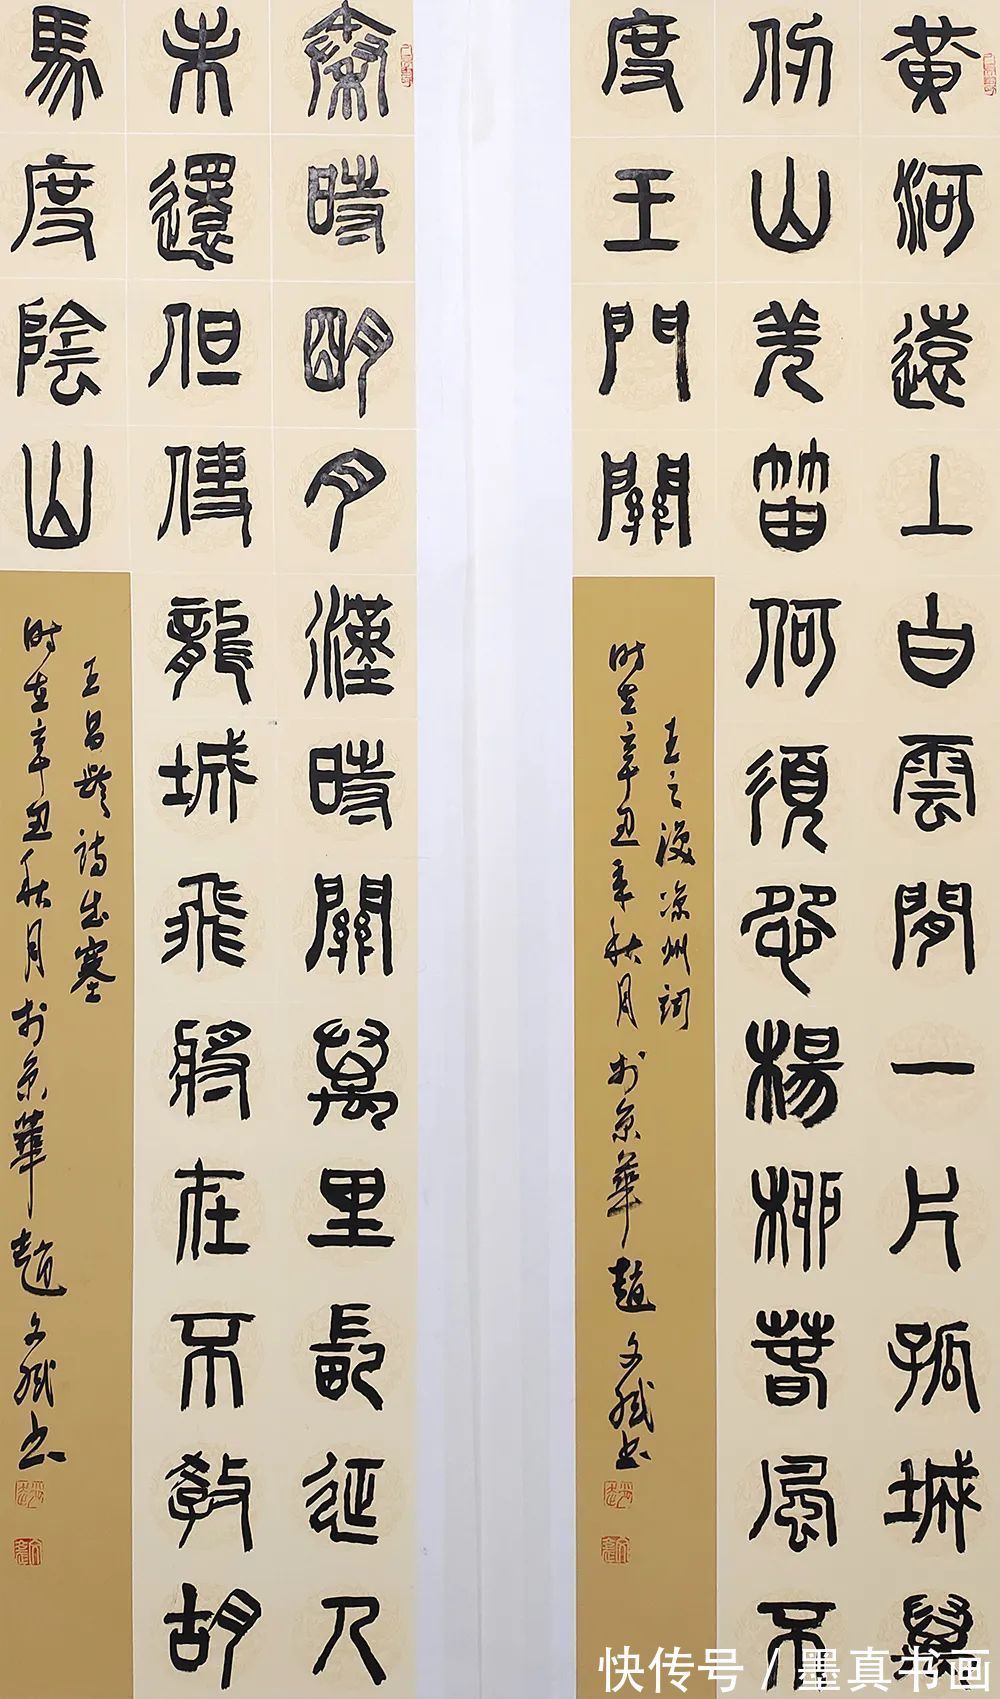 黄河遠上白雲閒一片孤城萬
仞山羌笛何須怨楊柳春風不
度玉門關
王之渙凉州詞
时在辛丑年秋月於京華趙文书
秦時明月漢時關萬里長征人
未還但使龍城飛將在不教胡
馬度陰山
王昌齡詩出塞
时在辛丑秋月於京華趙文书
快传号 / 墨真书画